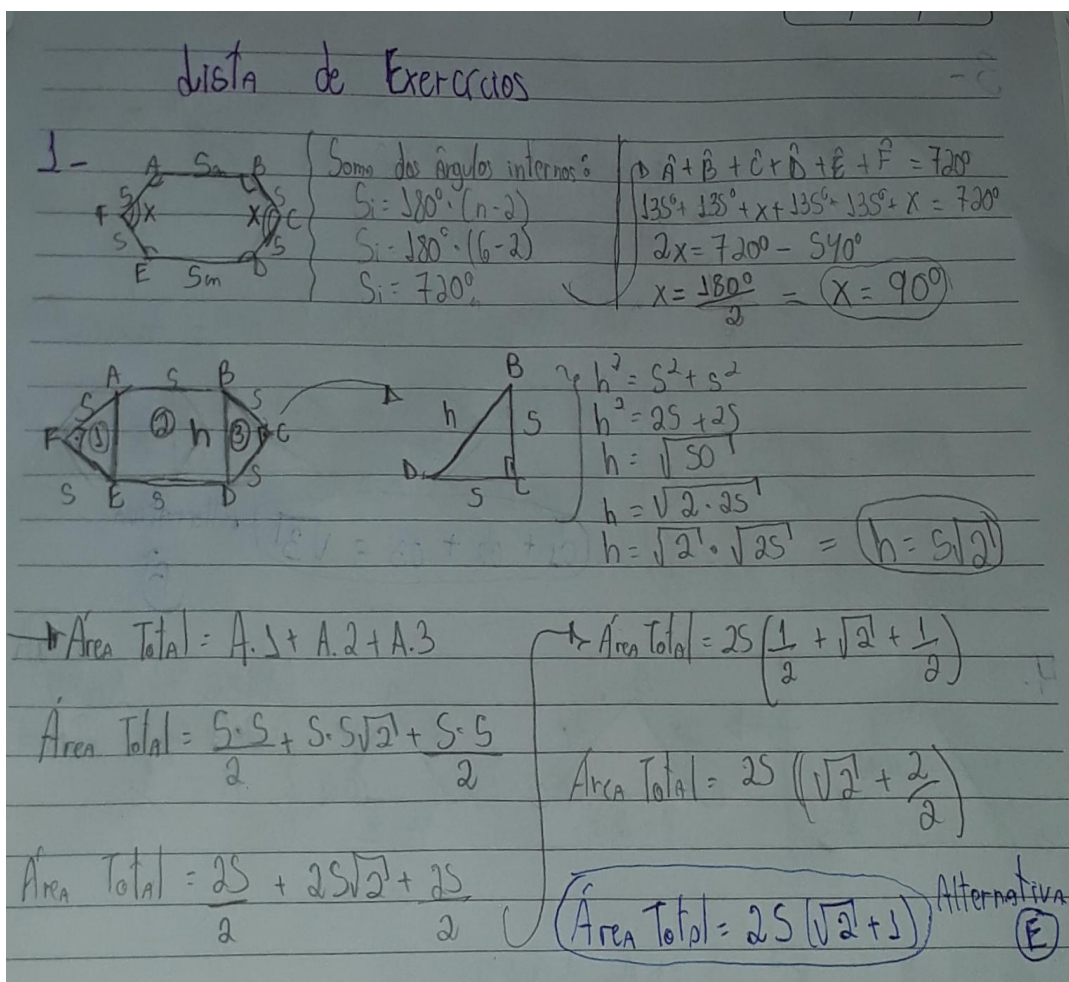 Lista de Exercícios
1-
A 5m B
5 5
F X X C
5 5
E 5m D
Soma dos ângulos internos:
Si = 180°·(n-2)
Si = 180°·(6-2)
Si = 720°
Â + B̂ + Ĉ + D̂ + Ê + F̂ = 720°
135° + 135° + x + 135° + 135° + x = 720°
2x = 720° - 540°
x = 180°/2 = x = 90°
A 5 B
5 5
F 1 2 h 3 C
5 E 5 D 5
B
h 5
D 5 C
h² = 5² + 5²
h² = 25 + 25
h = √50
h = √2·25
h = √2 · √25 = h = 5√2
Área Total = A.1 + A.2 + A.3
Área Total = 5·5/2 + 5·5√2 + 5·5/2
Área Total = 25/2 + 25√2 + 25/2
Área Total = 25(1/2 + √2 + 1/2)
Área Total = 25(√2 + 2/2)
Área Total = 25(√2 + 1) Alternativa
E